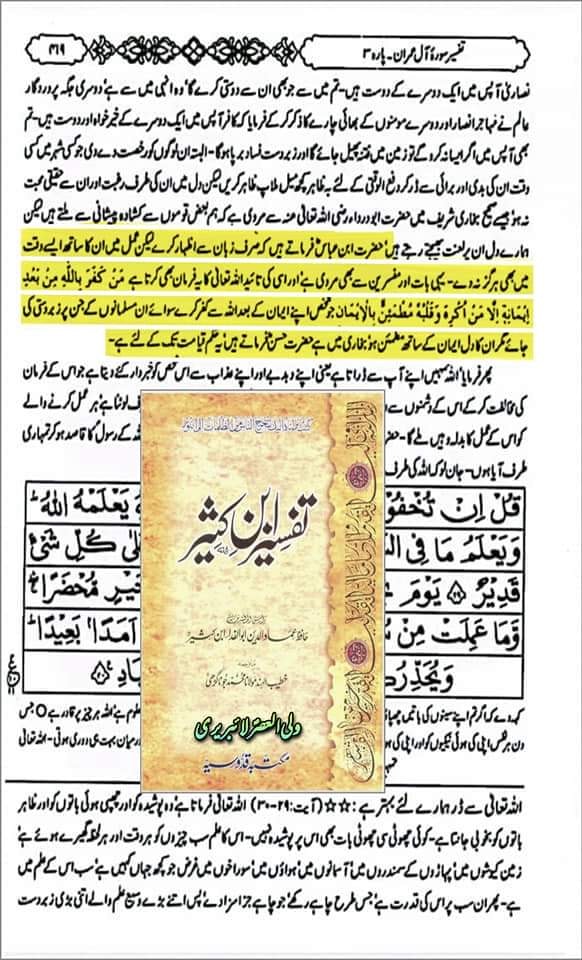 تفسیر سورۂ آل عمران۔ پارہ ۳
۴۱۹
نصاریٰ آپس میں ایک دوسرے کے دوست ہیں۔ تم میں سے جو بھی ان سے دوستی کرے گا' وہ انہی میں سے ہے' دوسری جگہ پروردگار
عالم نے مہاجر انصار اور دوسرے مومنوں کے بھائی چارے کا ذکر کر کے فرمایا کہ کافر آپس میں ایک دوسرے کے خیر خواہ اور دوست ہیں۔ تم
بھی آپس میں اگر ایسا نہ کرو گے تو زمین میں فتنہ پھیل جائے گا اور زبردست فساد برپا ہوگا۔ البتہ ان لوگوں کو رخصت دے دی جو کسی شہر میں کسی
وقت ان کی بدی اور برائی سے ڈر کر دفع الوقتی کے لئے بہ ظاہر کچھ میل ملاپ ظاہر کریں لیکن دل میں ان کی طرف رغبت اور ان سے حقیقی محبت
نہ ہو' جیسے صحیح بخاری شریف میں حضرت ابو درداء رضی اللہ تعالیٰ عنہ سے مروی ہے کہ ہم بعض قوموں سے کشادہ پیشانی سے ملتے ہیں لیکن
ہمارے دل ان پر لعنت بھیجتے رہتے ہیں' حضرت ابن عباسؓ فرماتے ہیں کہ صرف زبان سے اظہار کرے لیکن عمل میں ان کا ساتھ ایسے وقت
میں بھی ہرگز نہ دے۔ یہی بات اور مفسرین سے بھی مروی ہے' اور اسی کی تائید اللہ تعالیٰ کا یہ فرمان بھی کرتا ہے مَنْ كَفَرَ بِاللّٰهِ مِنْ بَعْدِ
اِيْمَانِهٖ اِلَّا مَنْ اُكْرِهَ وَقَلْبُهٗ مُطْمَئِنٌّۢ بِالْاِيْمَانِ جو شخص اپنے ایمان کے بعد اللہ سے کفر کرے سوائے ان مسلمانوں کے جن پر زبردستی کی
جائے مگر ان کا دل ایمان کے ساتھ مطمئن ہو' بخاری میں ہے حضرت حسنؒ فرماتے ہیں' یہ حکم قیامت تک کے لئے ہے۔
پھر فرمایا' اللہ تمہیں اپنے آپ سے ڈراتا ہے یعنی اپنے دبدبے اور اپنے عذاب سے اس شخص کو خبردار کئے دیتا ہے جو اس کے فرمان
کی مخالفت کر کے اس کے دشمنوں سے
ف لوٹنا ہے' ہر عمل کرنے والے
کو اس کے عمل کا بدلہ وہیں ملے گا۔
کے رسول' کا قاصد ہو کر تمہاری
طرف آیا ہوں۔ جان لو کہ اللہ کی طرف
قُلْ اِنْ تُخْفُوْ
يَعْلَمْهُ اللّٰهُ ؕ
وَيَعْلَمُ مَا فِى ال
لٰى كُلِّ شَىْءٍ
قَدِيْرٌ يَوْمَ
خَيْرٍ مُّحْضَرًا
وَّمَا عَمِلَتْ مِنْ سُ
اَمَدًۢا بَعِيْدًا ؕ
وَيُحَذِّرُكُ
بَادِ
تفسیر ابن کثیر
حافظ عماد الدین ابوالفداء ابن کثیر
خطیب الہند مولانا محمد جوناگڑھی
ولی العصر لائبریری
مکتبہ قدوسیہ
کہہ دے کہ اگر تم اپنے سینوں کی باتیں چھپا
معلوم ہے' اللہ ہر چیز پر قادر ہے جس
دن ہر نفس اپنی کی ہوئی نیکیوں کو اور اپنی کی
درمیان بہت ہی دوری ہوتی۔ اللہ تعالیٰ
اللہ تعالیٰ سے ڈر ہمارے لئے بہتر ہے : ☆☆ (آیت: ۲۹-۳۰) اللہ تعالیٰ فرماتا ہے' وہ پوشیدہ کو اور چھپی ہوئی باتوں کو اور ظاہر
باتوں کو بخوبی جانتا ہے۔ کوئی چھوٹی سی چھوٹی بات بھی اس پر پوشیدہ نہیں۔ اس کا علم سب چیزوں کو ہر وقت اور ہر لحظہ گھیرے ہوئے ہے'
زمین کے گوشوں میں' پہاڑوں کے سمندروں میں' آسمانوں میں' ہواؤں میں' سوراخوں میں غرض جو کچھ جہاں کہیں ہے' سب اس کے علم میں
ہے۔ پھر ان سب پر اس کی قدرت ہے' جس طرح چاہے رکھے' جو چاہے جزا سزا دے' پس اتنے بڑے وسیع علم والے اتنی بڑی زبردست